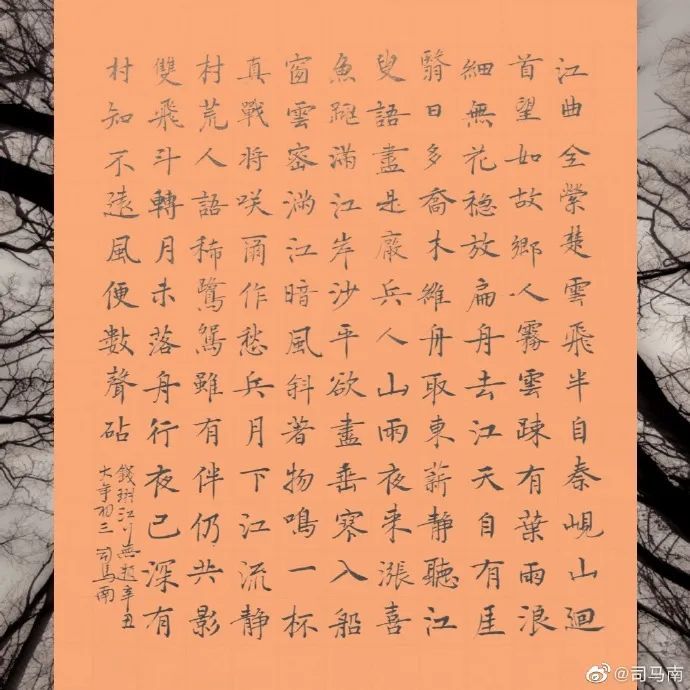 江曲全縈楚雲飛半自秦峴山迴
首望如故鄉人霧雲疎有葉雨浪
細無花穏放扁舟去江天自有厓
翳日多喬木維舟取東薪靜聽江
叟語盡是厰兵人山雨夜来漲喜
魚跳滿江岸沙平欲盡垂寥入船
窗雲密滿江暗風斜著物鳴一杯
真戰將咲爾作愁兵月下江流静
村荒人語稀鷺鴛雖有伴仍共影
雙飛斗轉月未落舟行夜已深有
村知不遠風便数聲砧
錢珝江行無題辛丑
大年初三 司马南
@司马南